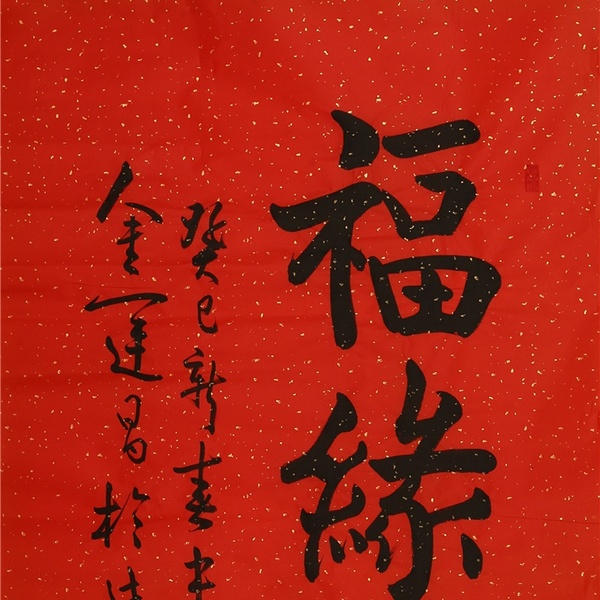 福緣
癸巳新春
金運昌於